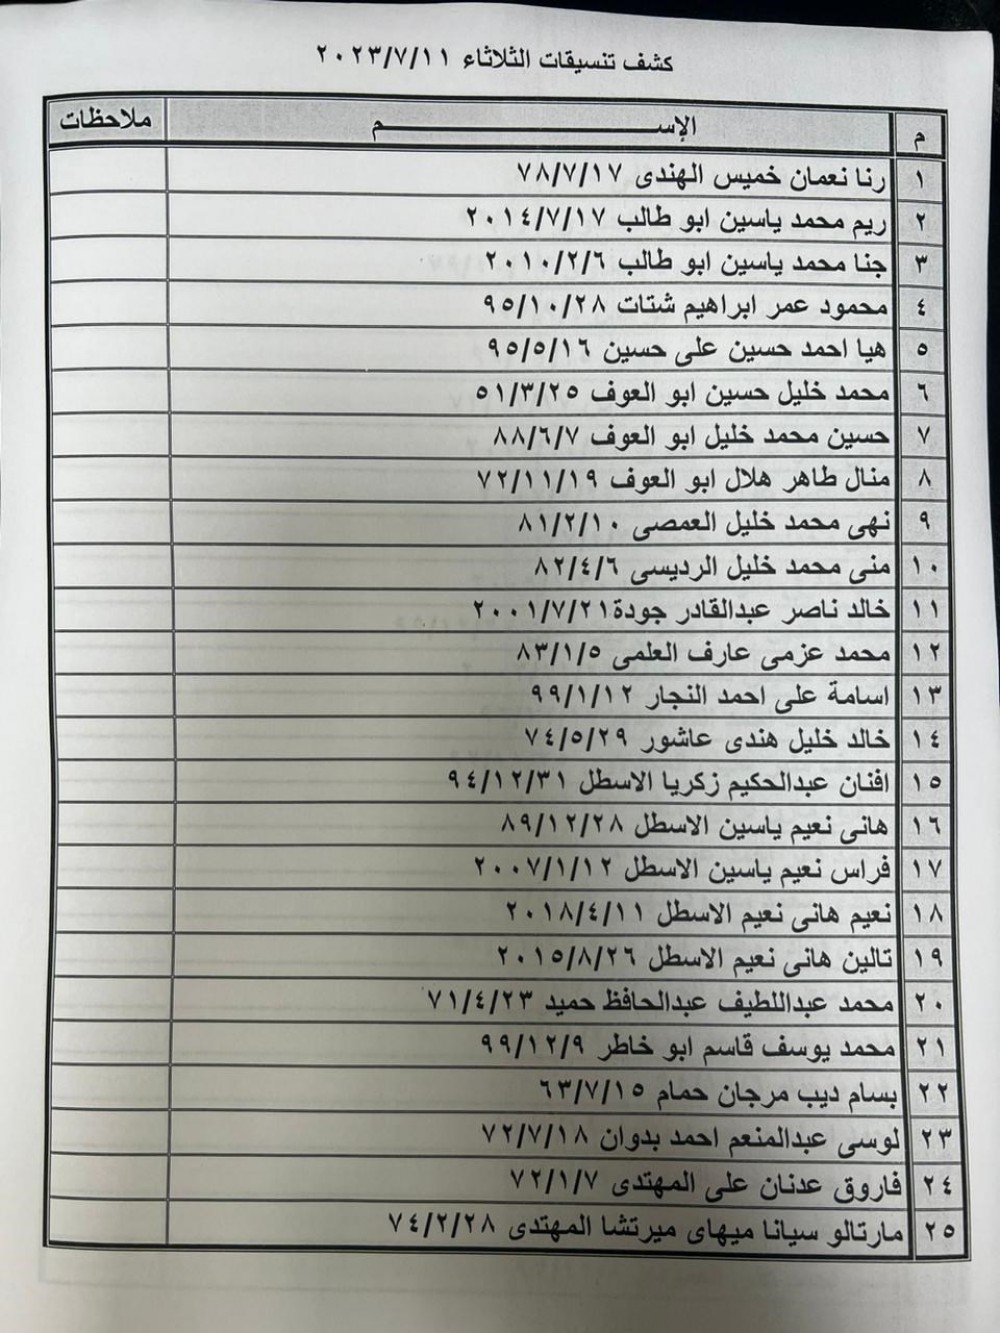 كشف تنسيقات الثلاثاء ٢٠٢٣/٧/١١
م الإســـــــــــــــــــــم ملاحظات
١ رنا نعمان خميس الهندى ٧٨/٧/١٧
٢ ريم محمد ياسين ابو طالب ٢٠١٤/٧/١٧
٣ جنا محمد ياسين ابو طالب ٢٠١٠/٢/٦
٤ محمود عمر ابراهيم شتات ٩٥/١٠/٢٨
٥ هيا احمد حسين على حسين ٩٥/٥/١٦
٦ محمد خليل حسين ابو العوف ٥١/٣/٢٥
٧ حسين محمد خليل ابو العوف ٨٨/٦/٧
٨ منال طاهر هلال ابو العوف ٧٢/١١/١٩
٩ نهى محمد خليل العمصى ٨١/٢/١٠
١٠ منى محمد خليل الرديسى ٨٢/٤/٦
١١ خالد ناصر عبدالقادر جودة٢٠٠١/٧/٢١
١٢ محمد عزمى عارف العلمى ٨٣/١/٥
١٣ اسامة على احمد النجار ٩٩/١/١٢
١٤ خالد خليل هندى عاشور ٧٤/٥/٢٩
١٥ افنان عبدالحكيم زكريا الاسطل ٩٤/١٢/٣١
١٦ هانى نعيم ياسين الاسطل ٨٩/١٢/٢٨
١٧ فراس نعيم ياسين الاسطل ٢٠٠٧/١/١٢
١٨ نعيم هانى نعيم الاسطل ٢٠١٨/٤/١١
١٩ تالين هانى نعيم الاسطل ٢٠١٥/٨/٢٦
٢٠ محمد عبداللطيف عبدالحافظ حميد ٧١/٤/٢٣
٢١ محمد يوسف قاسم ابو خاطر ٩٩/١٢/٩
٢٢ بسام ديب مرجان حمام ٦٣/٧/١٥
٢٣ لوسى عبدالمنعم احمد بدوان ٧٢/٧/١٨
٢٤ فاروق عدنان على المهتدى ٧٢/١/٧
٢٥ مارتالو سيانا ميهاى ميرتشا المهتدى ٧٤/٢/٢٨